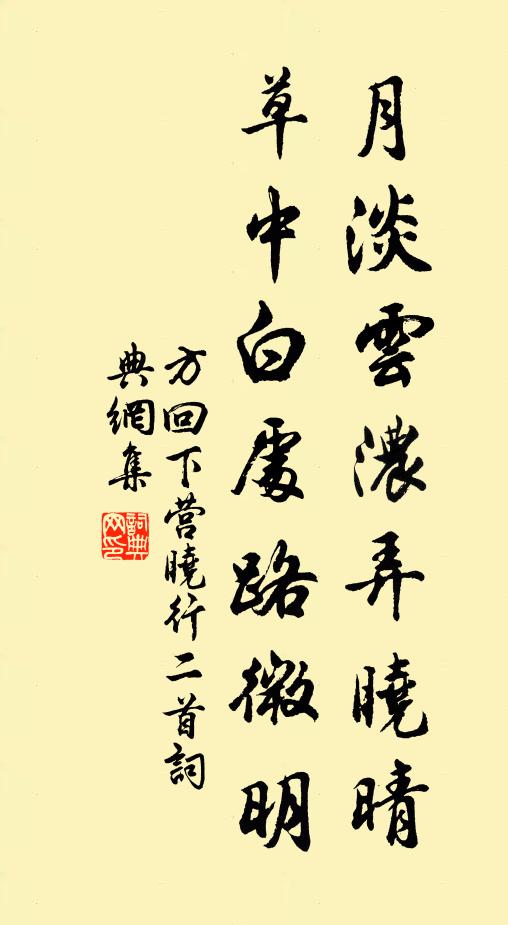 月淡雲濃弄曉晴
草中白處路微明
方回下营曉行二首詞
典網集
詞典
网印